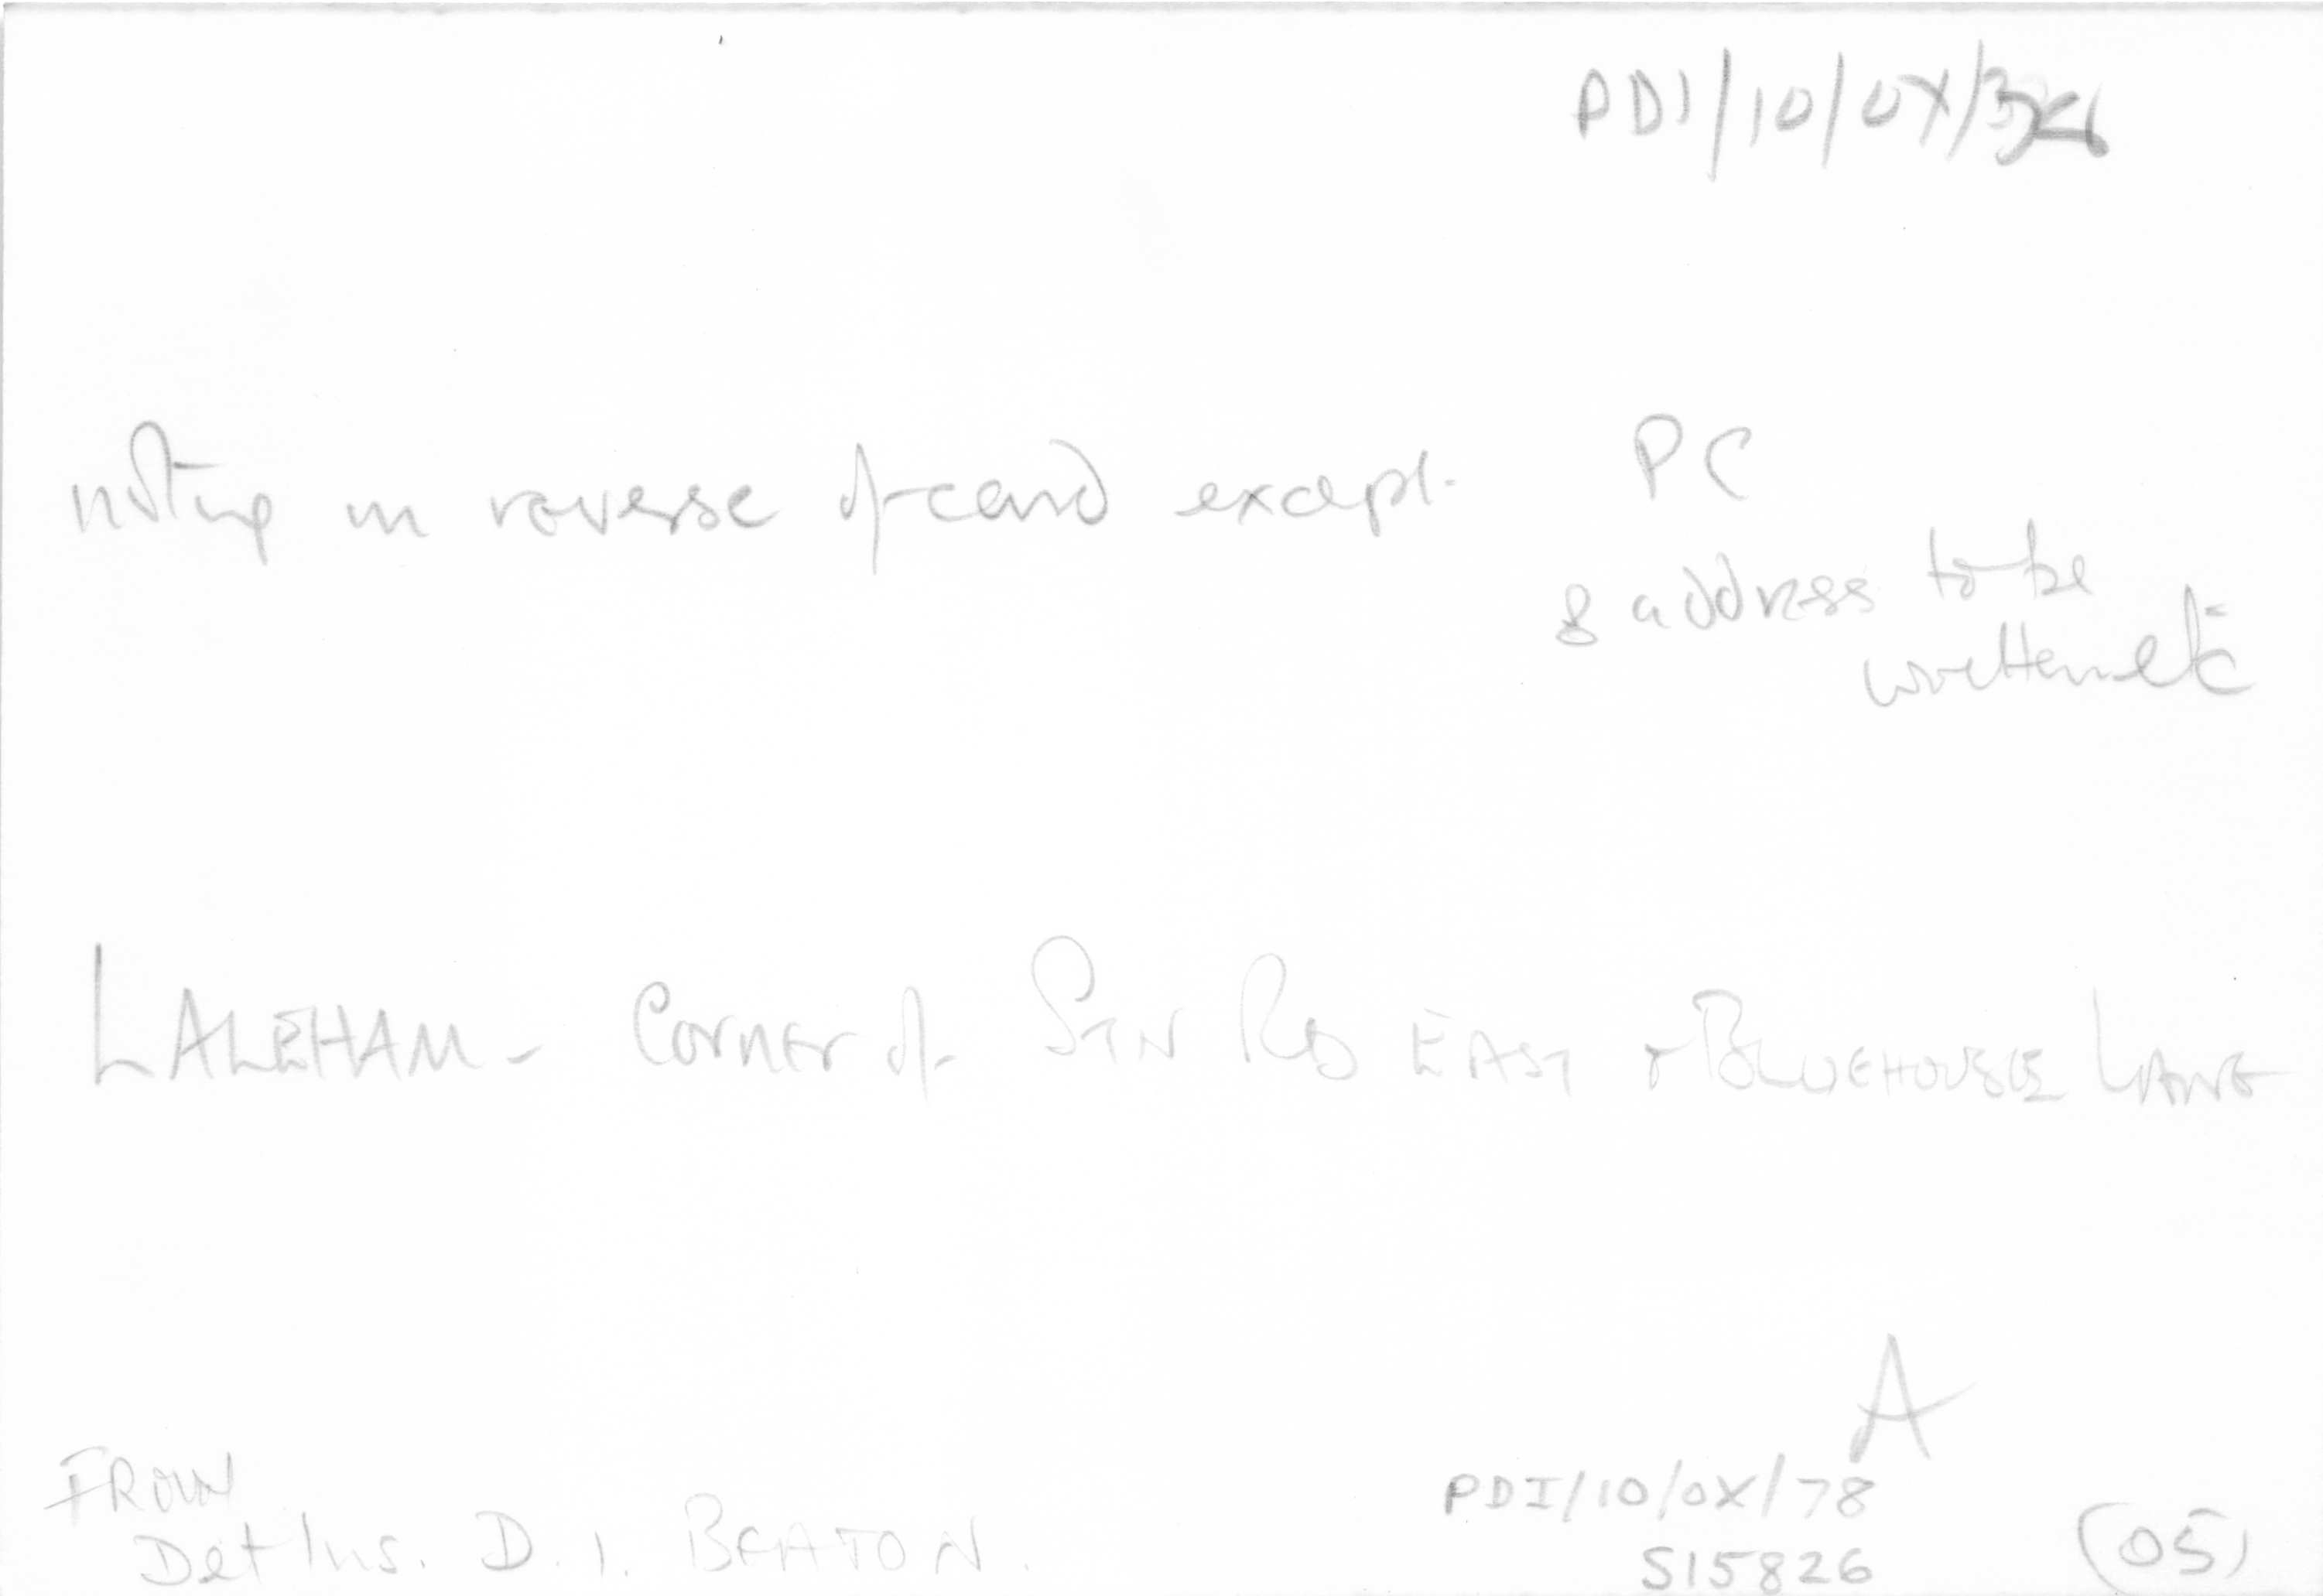 PDI/10/OX/
nothing on reverse of card except PC
& address to be
written etc
LALEHAM - Corner of STN RD EAST & BLUEHOUSE LANE
A
FROM
Det Ins. D. I. BEATON.
PDI/10/OX/78
S15826
(05)